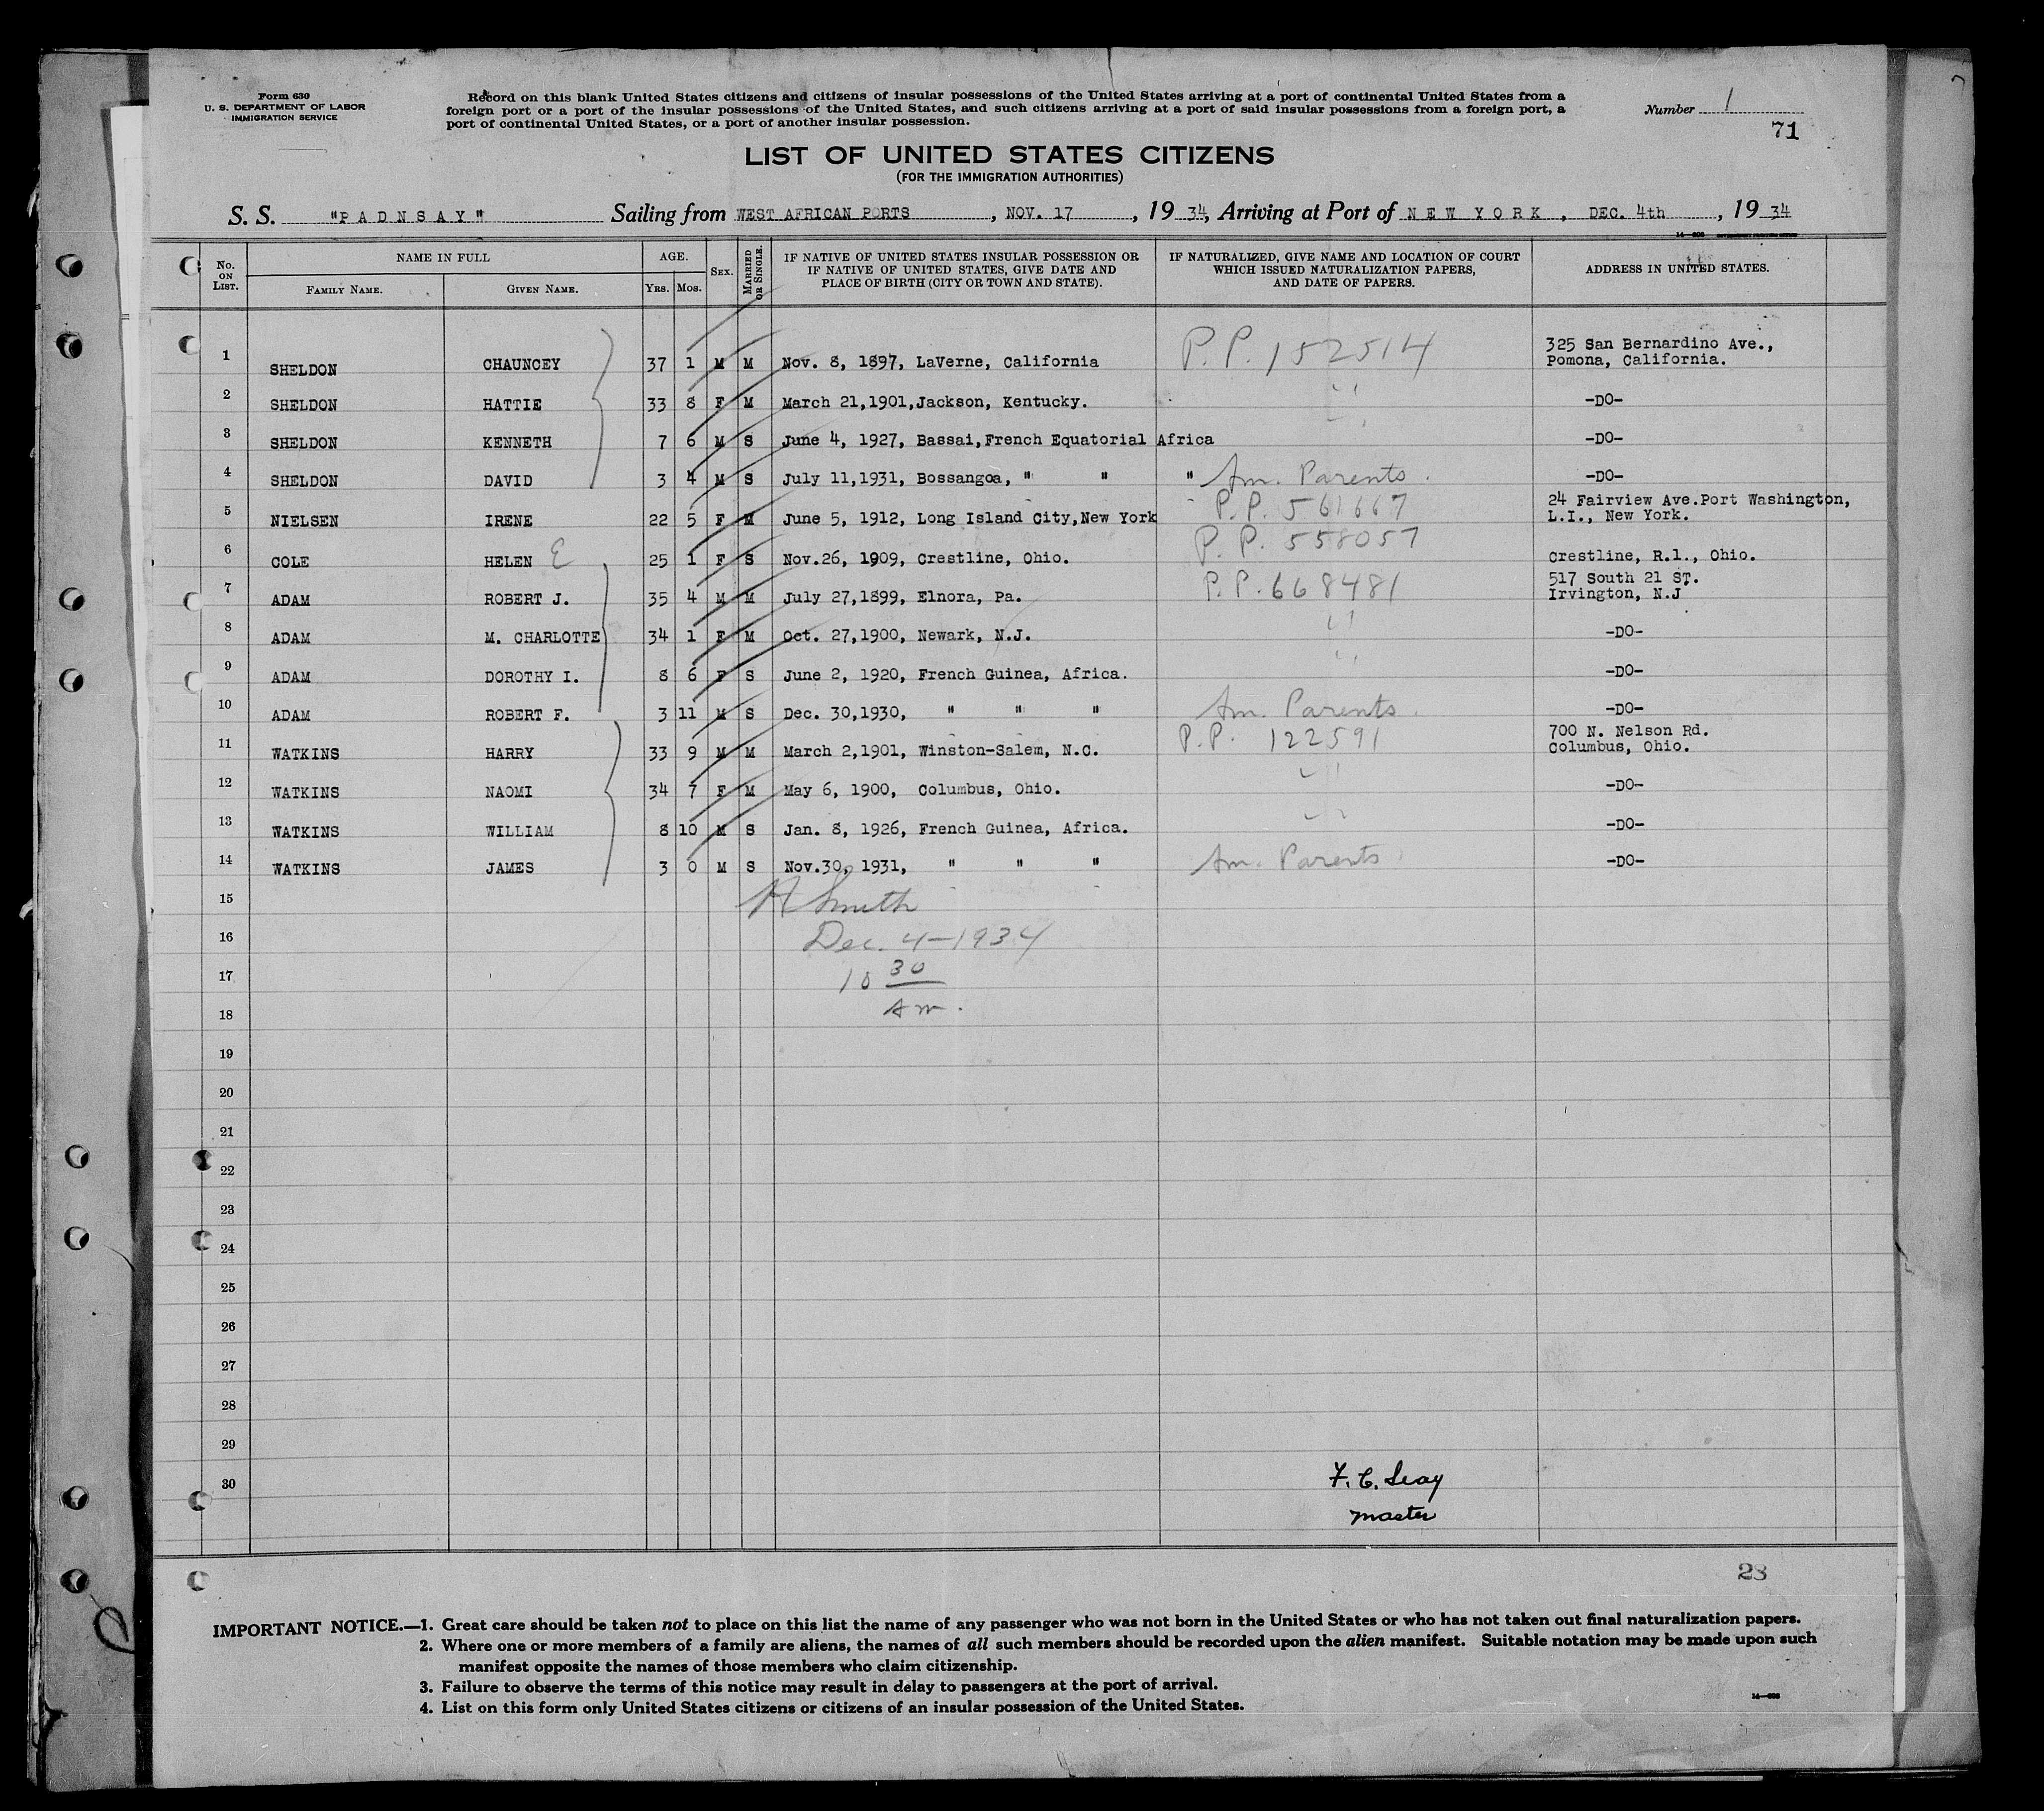 Form 630
U. S. DEPARTMENT OF LABOR
IMMIGRATION SERVICE
Record on this blank United States citizens and citizens of insular possessions of the United States arriving at a port of continental United States from a
foreign port or a port of the insular possessions of the United States, and such citizens arriving at a port of said insular possessions from a foreign port, a
port of continental United States, or a port of another insular possession.
Number 1
71
LIST OF UNITED STATES CITIZENS
(FOR THE IMMIGRATION AUTHORITIES)
S. S. "PADNSAY" Sailing from WEST AFRICAN PORTS, NOV. 17, 1934, Arriving at Port of NEW YORK, DEC. 4th, 1934
No. ON LIST. NAME IN FULL FAMILY NAME. GIVEN NAME. AGE. YRS. MOS. SEX. MARRIED OR SINGLE. IF NATIVE OF UNITED STATES INSULAR POSSESSION OR IF NATIVE OF UNITED STATES, GIVE DATE AND PLACE OF BIRTH (CITY OR TOWN AND STATE). IF NATURALIZED, GIVE NAME AND LOCATION OF COURT WHICH ISSUED NATURALIZATION PAPERS, AND DATE OF PAPERS. ADDRESS IN UNITED STATES.
1 SHELDON CHAUNCEY 37 1 M M Nov. 8, 1897, LaVerne, California P.P. 152514 325 San Bernardino Ave., Pomona, California.
2 SHELDON HATTIE 33 8 F M March 21,1901,Jackson, Kentucky. " -DO-
3 SHELDON KENNETH 7 6 M S June 4, 1927, Bassai,French Equatorial Africa -DO-
4 SHELDON DAVID 3 4 M S July 11,1931, Bossangoa, " " " Am. Parents. -DO-
5 NIELSEN IRENE 22 5 F M June 5, 1912, Long Island City,New York P.P. 561667 24 Fairview Ave.Port Washington, L.I., New York.
6 COLE HELEN E 25 1 F S Nov.26, 1909, Crestline, Ohio. P.P. 558057 Crestline, R.1., Ohio.
7 ADAM ROBERT J. 35 4 M M July 27,1899, Elnora, Pa. P.P. 668481 517 South 21 ST. Irvington, N.J
8 ADAM M. CHARLOTTE 34 1 F M Oct. 27,1900, Newark, N.J. " -DO-
9 ADAM DOROTHY I. 8 6 F S June 2, 1920, French Guinea, Africa. " -DO-
10 ADAM ROBERT F. 3 11 M S Dec. 30,1930, " " " Am. Parents. -DO-
11 WATKINS HARRY 33 9 M M March 2,1901, Winston-Salem, N.C. P.P. 122591 700 N. Nelson Rd. Columbus, Ohio.
12 WATKINS NAOMI 34 7 F M May 6, 1900, Columbus, Ohio. " -DO-
13 WATKINS WILLIAM 8 10 M S Jan. 8, 1926, French Guinea, Africa. " -DO-
14 WATKINS JAMES 3 0 M S Nov.30, 1931, " " " Am. Parents -DO-
15 H Smith
16 Dec. 4-1934
17 10 30
18 Am.
19
20
21
22
23
24
25
26
27
28
29
30 F. C. Seay
master
28
IMPORTANT NOTICE.—1. Great care should be taken not to place on this list the name of any passenger who was not born in the United States or who has not taken out final naturalization papers.
2. Where one or more members of a family are aliens, the names of all such members should be recorded upon the alien manifest. Suitable notation may be made upon such
manifest opposite the names of those members who claim citizenship.
3. Failure to observe the terms of this notice may result in delay to passengers at the port of arrival.
4. List on this form only United States citizens or citizens of an insular possession of the United States.